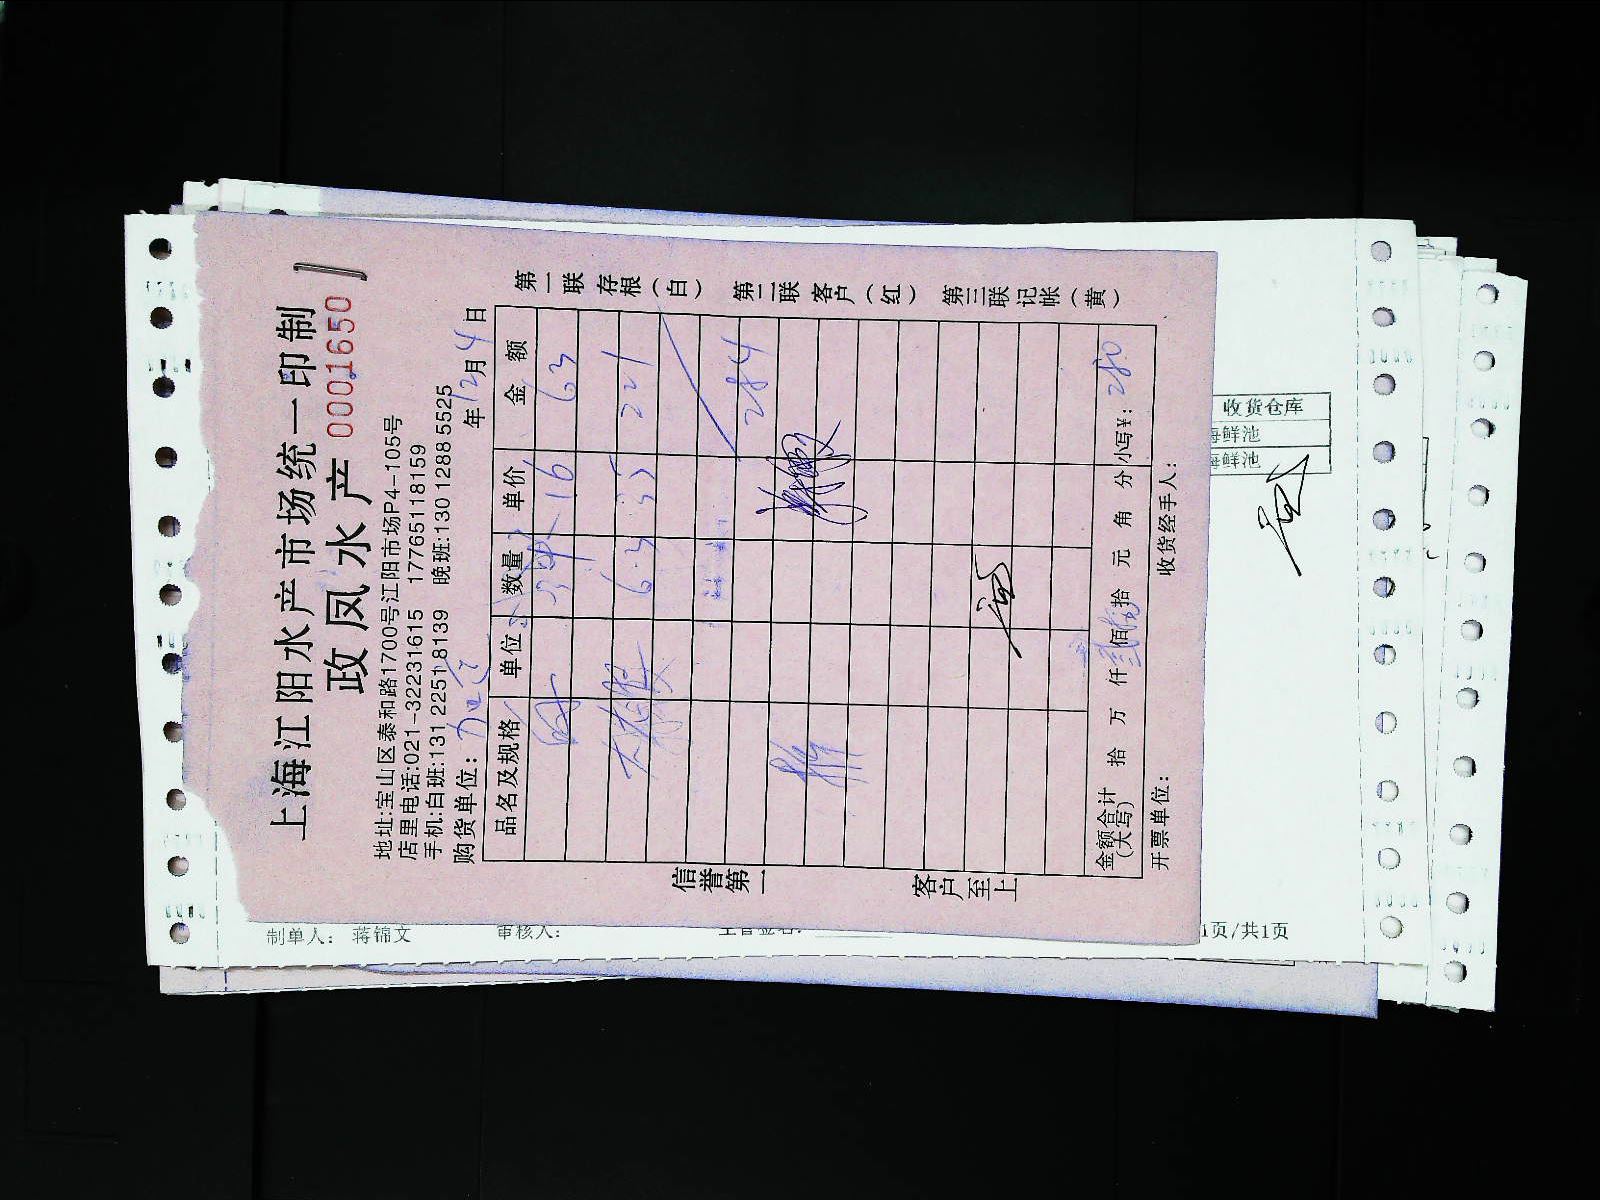 上海江阳水产市场统一印制
政凤水产 0001650
地址:宝山区泰和路1700号江阳市场P4-105号
店里电话:021-32231615 17765118159
手机:白班:131 2251 8139 晚班:130 1288 5525
购货单位: 年12月4日
品名及规格 单位 数量 单价 金额
16 63
大 6.3 35 221
284
金额合计(大写) 拾 万 仟 贰佰捌拾 元 角 分 小写¥: 280
开票单位: 收货经手人:
第一联 存根(白) 第二联 客户(红) 第三联 记帐(黄)
信誉第一 客户至上
收货仓库
海鲜池
海鲜池
制单人: 蒋锦文 审核人: 1页/共1页